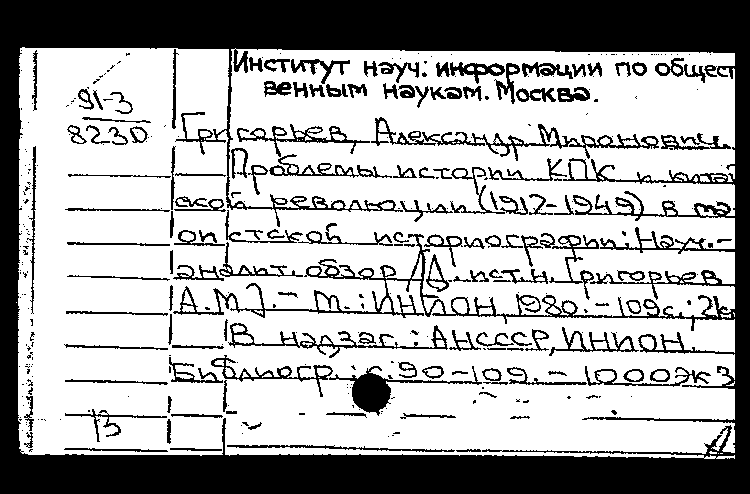 Институт науч. информации по общест
венным наукам. Москва.
91-3
8230
Григорьев, Александр Миронович.
Проблемы истории КПК и китай
ской революции (1917-1949) в ма-
оистской историографии: Науч.-
аналит. обзор / Д. ист. н. Григорьев
А.М.]. - М.: ИНИОН, 1980. - 109 с.; 2
В надзаг.: АНСССР, ИНИОН.
Библиогр.: с. 90-109. - 1000 экз
13
А